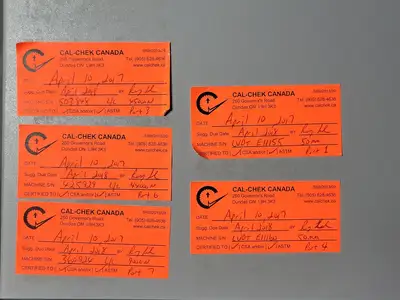 CAL-CHEK CANADA
250 Governor's Road
Dundas ON L9H 3K3
Tel. (905) 628-4636
www.calchek.ca
DATE: April 10, 2017
Sugg. Due Date: April 2018 or
MACHINE S/N:
Port 3
CAL-CHEK CANADA
250 Governor's Road
Dundas ON L9H 3K3
Tel. (905) 628-4636
www.calchek.ca
DATE: April 10, 2017
Sugg. Due Date: April 2018 or
MACHINE S/N:
CERTIFIED TO: ✓ CSA and/or ✓ ASTM Port 6
CAL-CHEK CANADA
250 Governor's Road
Dundas ON L9H 3K3
Tel. (905) 628-4636
www.calchek.ca
DATE: April 10, 2017
Sugg. Due Date: April 2018 or
MACHINE S/N:
CERTIFIED TO: ✓ CSA and/or ✓ ASTM Port 7
CAL-CHEK CANADA
250 Governor's Road
Dundas ON L9H 3K3
Tel. (905) 628-4636
www.calchek.ca
DATE: April 10, 2017
Sugg. Due Date: April 2018 or
MACHINE S/N: LVDT 50mm
CERTIFIED TO: CSA and/or ASTM Port 1
CAL-CHEK CANADA
250 Governor's Road
Dundas ON L9H 3K3
Tel. (905) 628-4636
www.calchek.ca
DATE: April 10, 2017
Sugg. Due Date: April 2018 or
MACHINE S/N: LVDT 50mm
CERTIFIED TO: ✓ CSA and/or ✓ ASTM Port 4